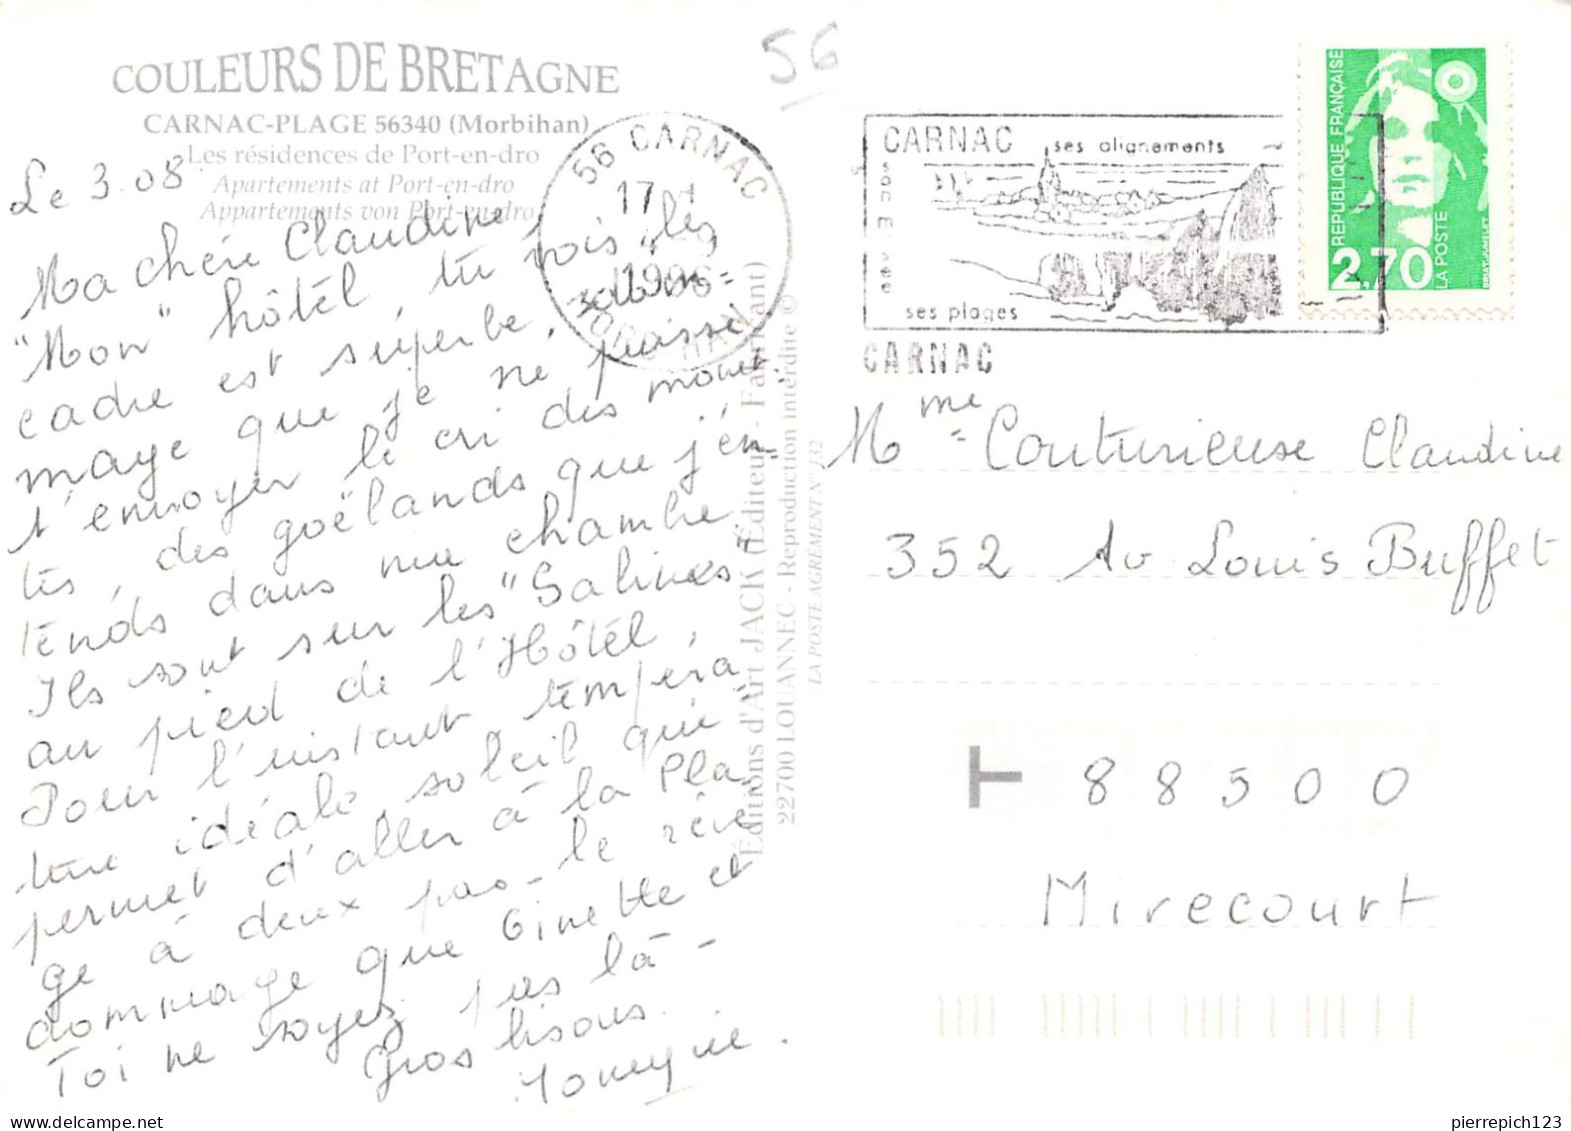 COULEURS DE BRETAGNE
CARNAC-PLAGE 56340 (Morbihan)
Les résidences de Port-en-dro
Apartements at Port-en-dro
Appartements von Port-en-dro
56
56 CARNAC
17
1996
MORBIHAN
CARNAC ses alignements
son musée
ses plages
CARNAC
RÉPUBLIQUE FRANÇAISE
2,70
LA POSTE
Le 3.08
Ma chérie Claudine,
"Mon" hôtel, tu vois, les
cadre est superbe,
mage que je ne puisse
t'envoyer le cri des mouet
tes, des goëlands que j'en
tends dans ma chambre
Ils sont sur les "Salines"
au pied de l'Hôtel,
Pour l'instant tempéra
ture idéale soleil qui
permet d'aller à la Pla
ge à deux pas - le rêve
dommage que Ginette et
Toi ne soyez pas là -
Gros bisous.
Editions d'Art JACK (Éditeur - Fabricant)
22700 LOUANNEC - Reproduction interdite ©
LA POSTE AGRÉMENT N° 132
Mme Couturieuse Claudine
352 Av Louis Buffet
88500
Mirecourt
pierrepich123